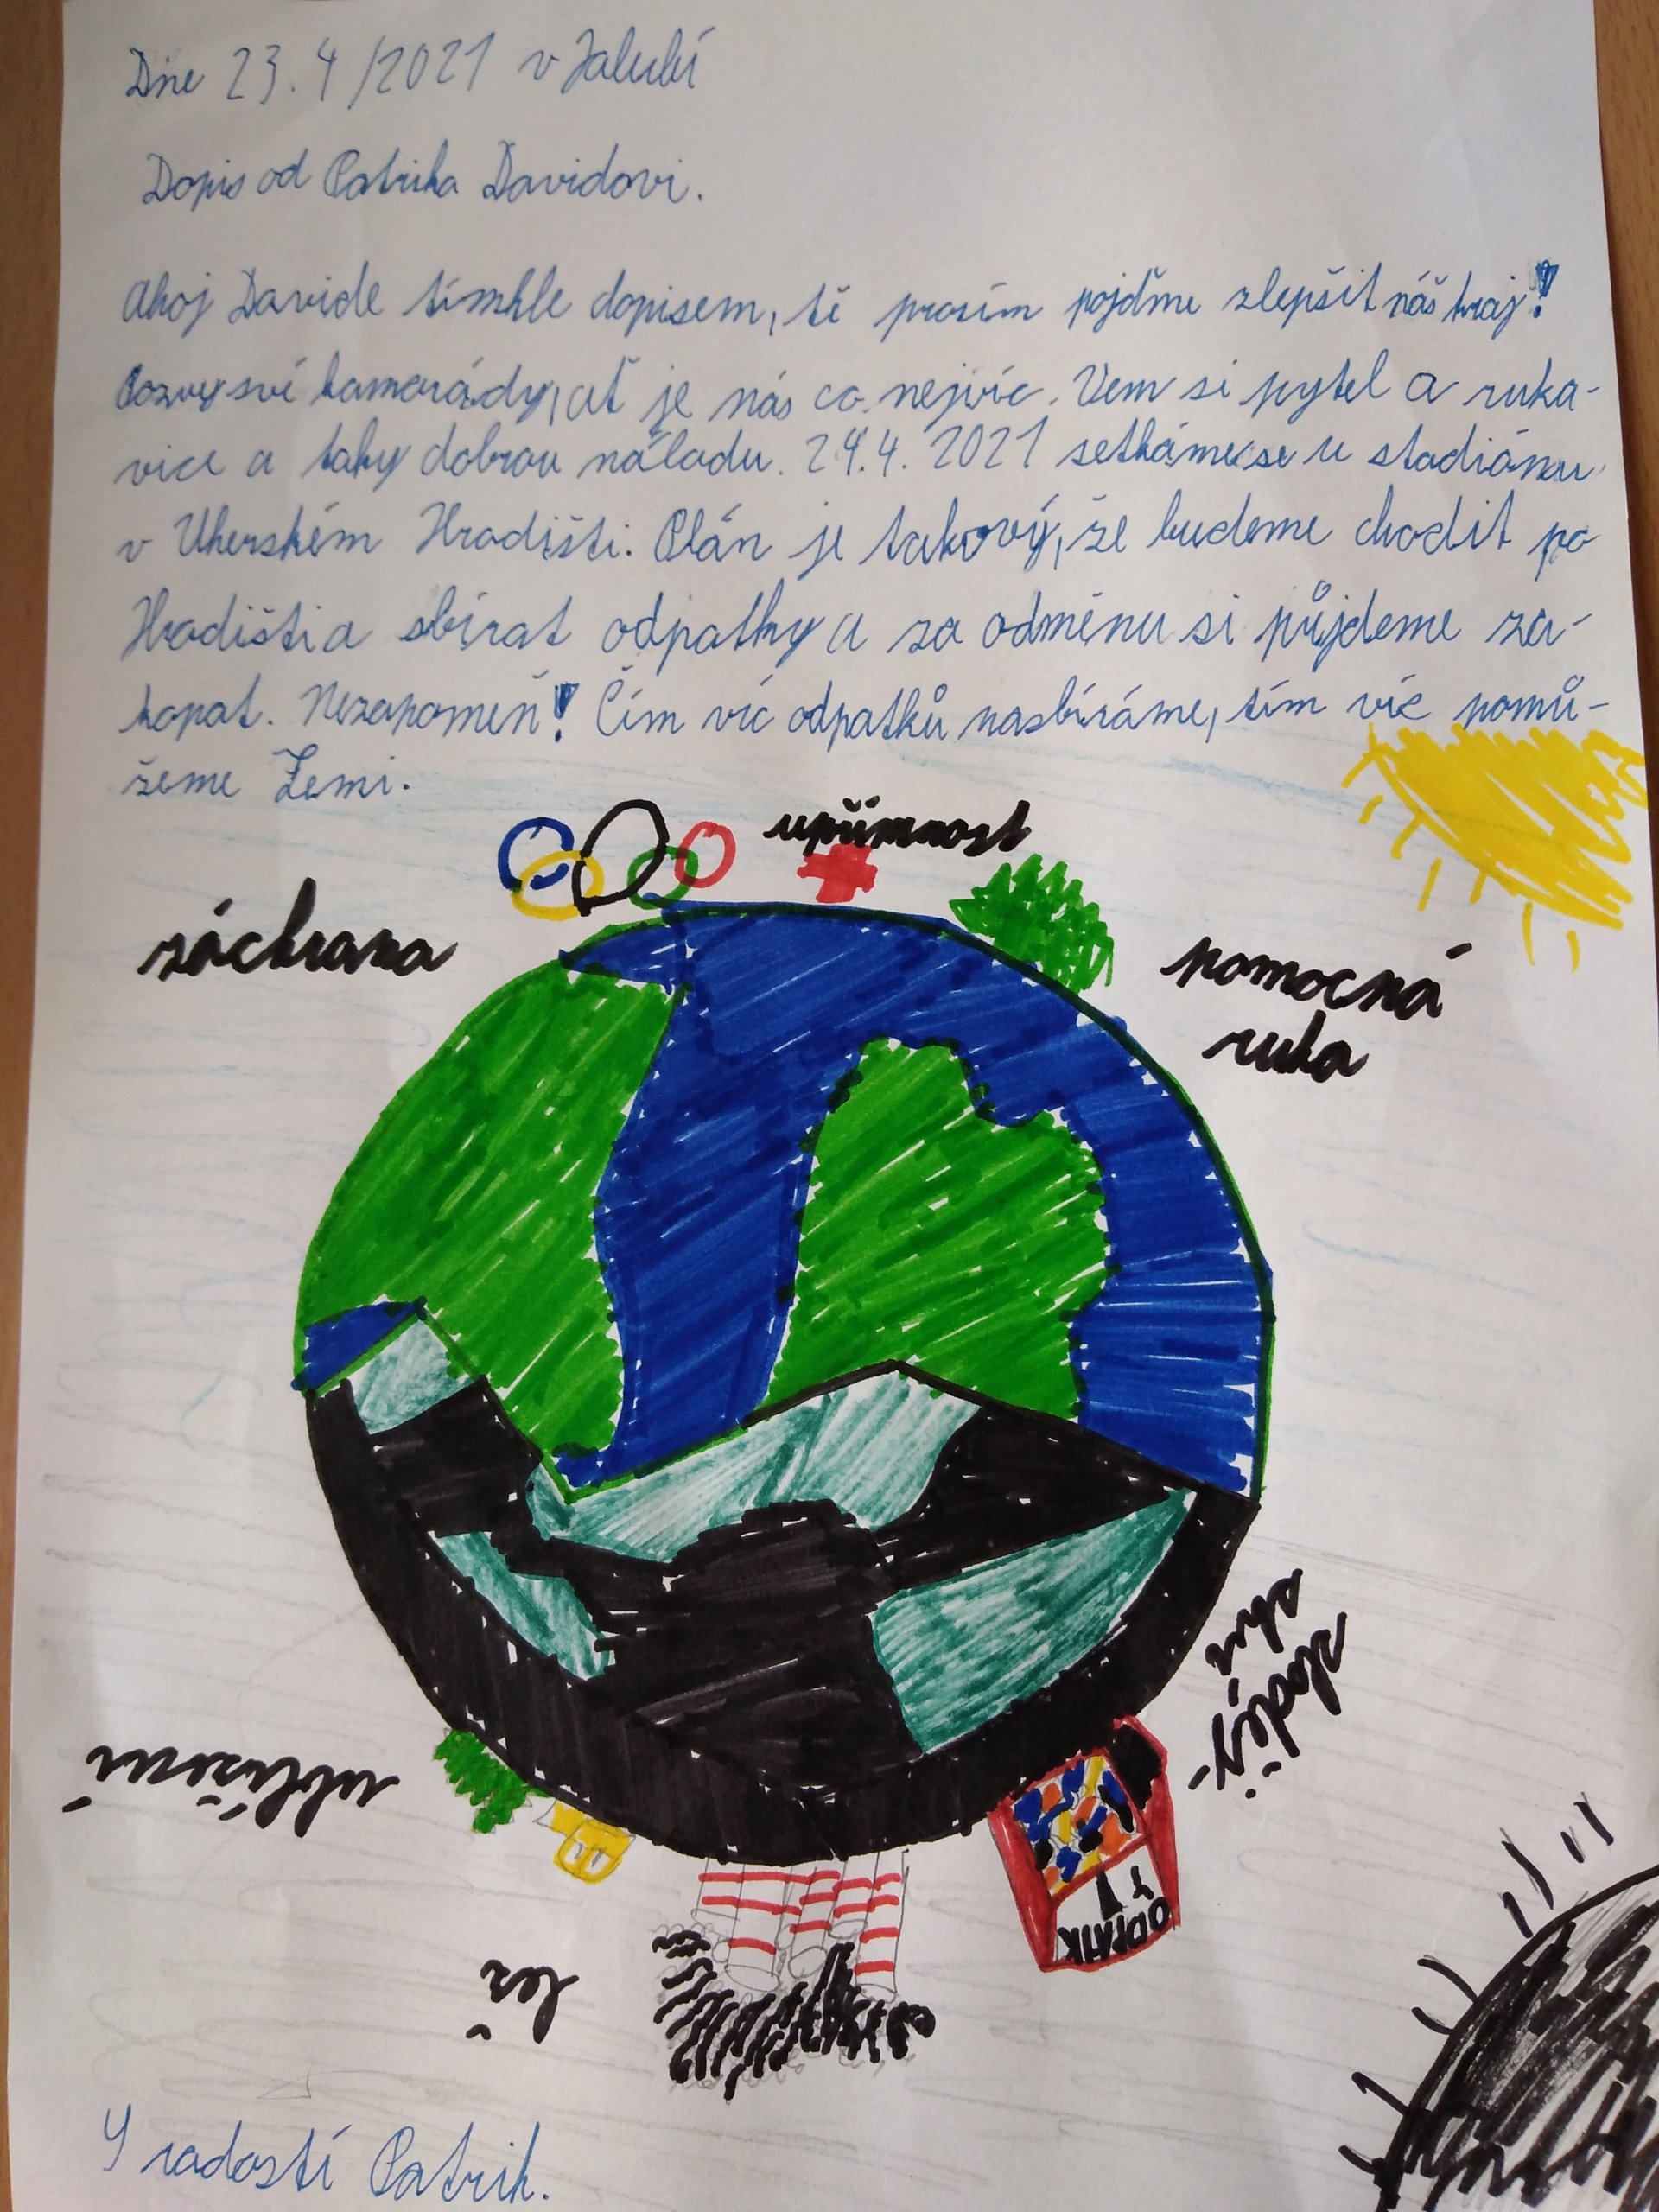 Dne 23.4/2021 v Jalubí
Dopis od Patrika Davidovi.
Ahoj Davide tímhle dopisem, tě prosím pojďme zlepšit náš kraj!
Pozvy své kamarády, ať je nás co nejvíc. Vem si pytel a ruka-
vice a taky dobrou náladu. 24.4. 2021 setkáme se u stadiónu
v Uherském Hradišti. Plán je takový, že budeme chodit po
Hradišti a sbírat odpatky a za odměnu si půjdeme za-
kopat. Nezapomeň! Čím víc odpatků nasbíráme, tím víc pomů-
žeme Zemi.
upřímnost
záchrana
pomocná
ruka
zloděj-
ina
ublížení
lež
ODPATK
Y
S radostí Patrik.